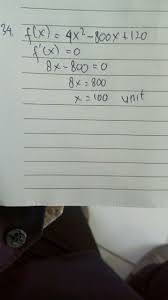 34. f(x) = 4x² - 800x + 120
f'(x) = 0
8x - 800 = 0
8x = 800
x = 100 unit